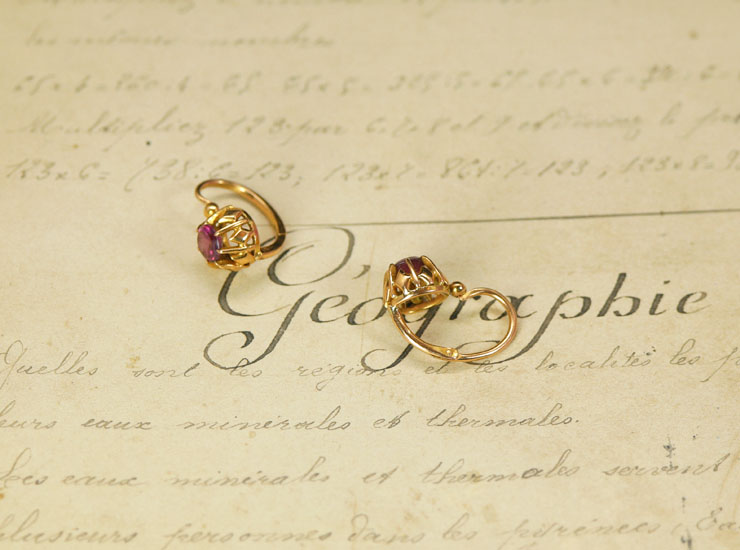 les mêmes nombres
Multipliez 123 par 6. 7. 8 et 9 et divisez le
123 x 6 = 738 : 6 = 123; 123 x 7 = 861 : 7 = 123, 123 x 8 =
Géographie
Quelles sont les régions et les localités les
leurs eaux minérales et thermales.
Les eaux minérales et thermales servent
plusieurs personnes dans les pyrénées,